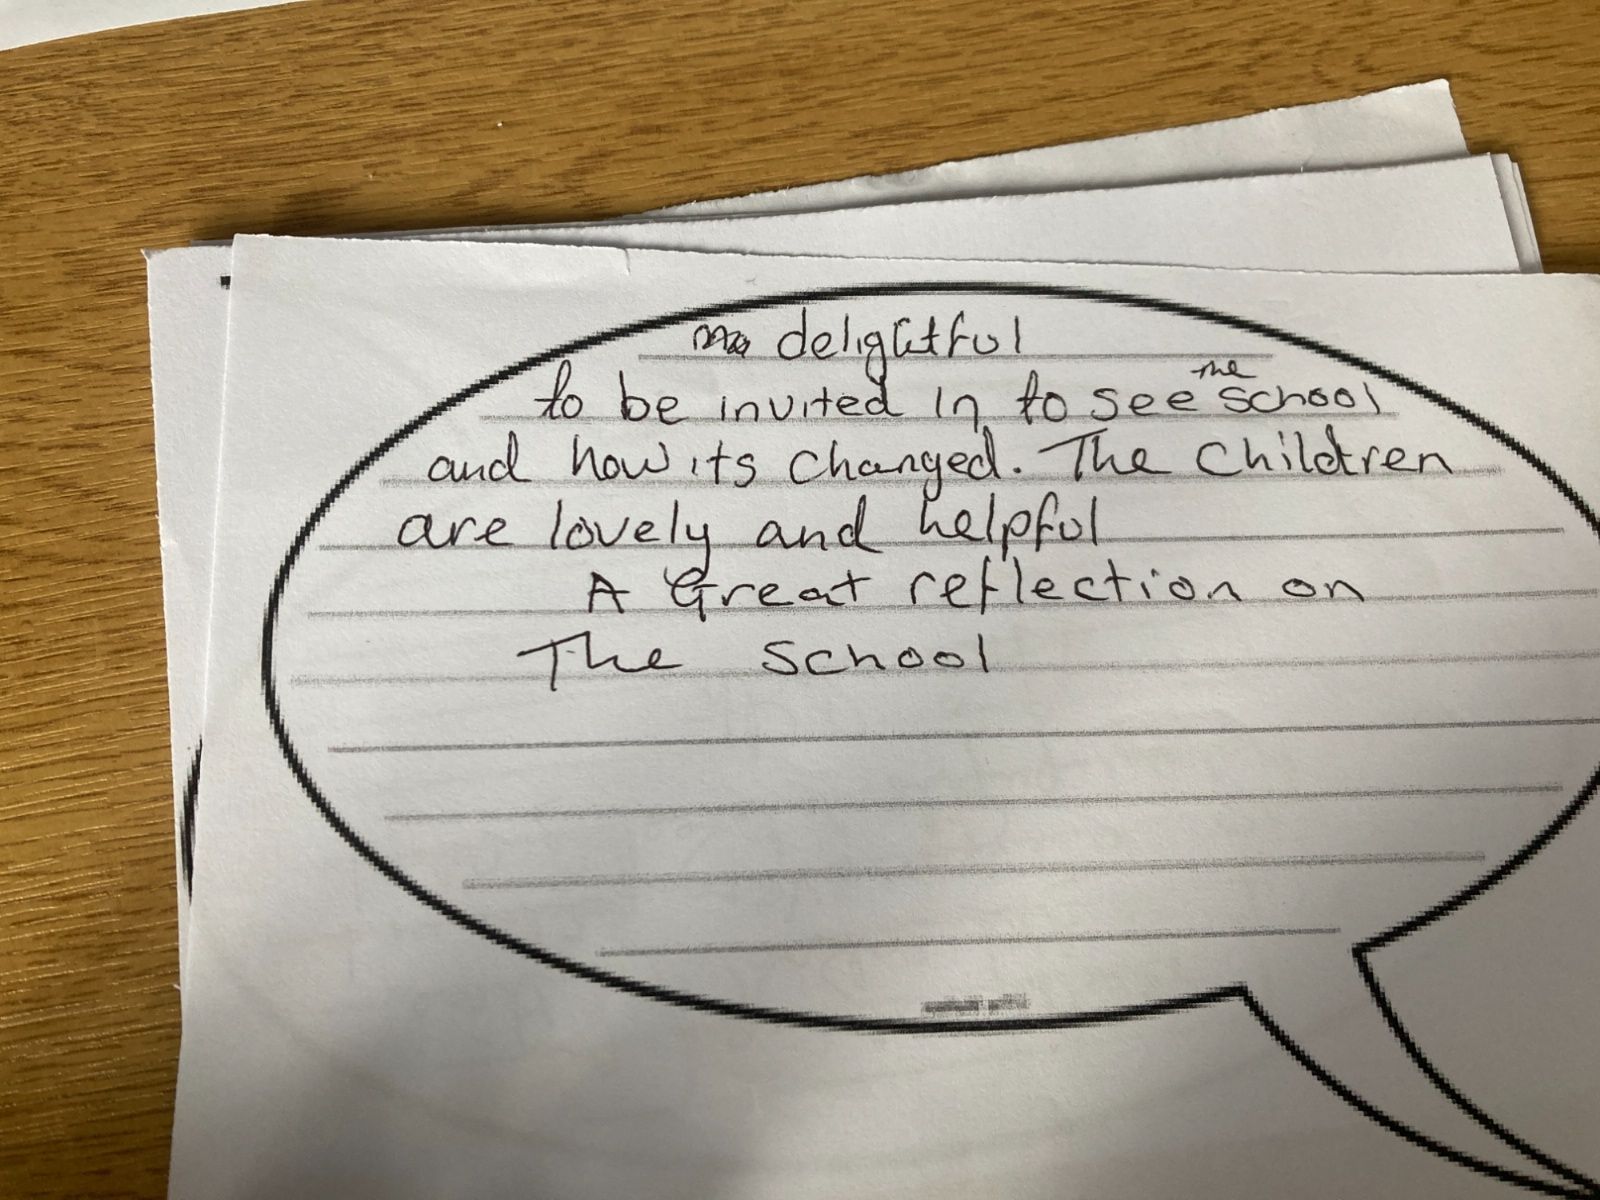 delightful
to be invited in to see the school
and how its changed. The Children
are lovely and helpful
A Great reflection on
The school